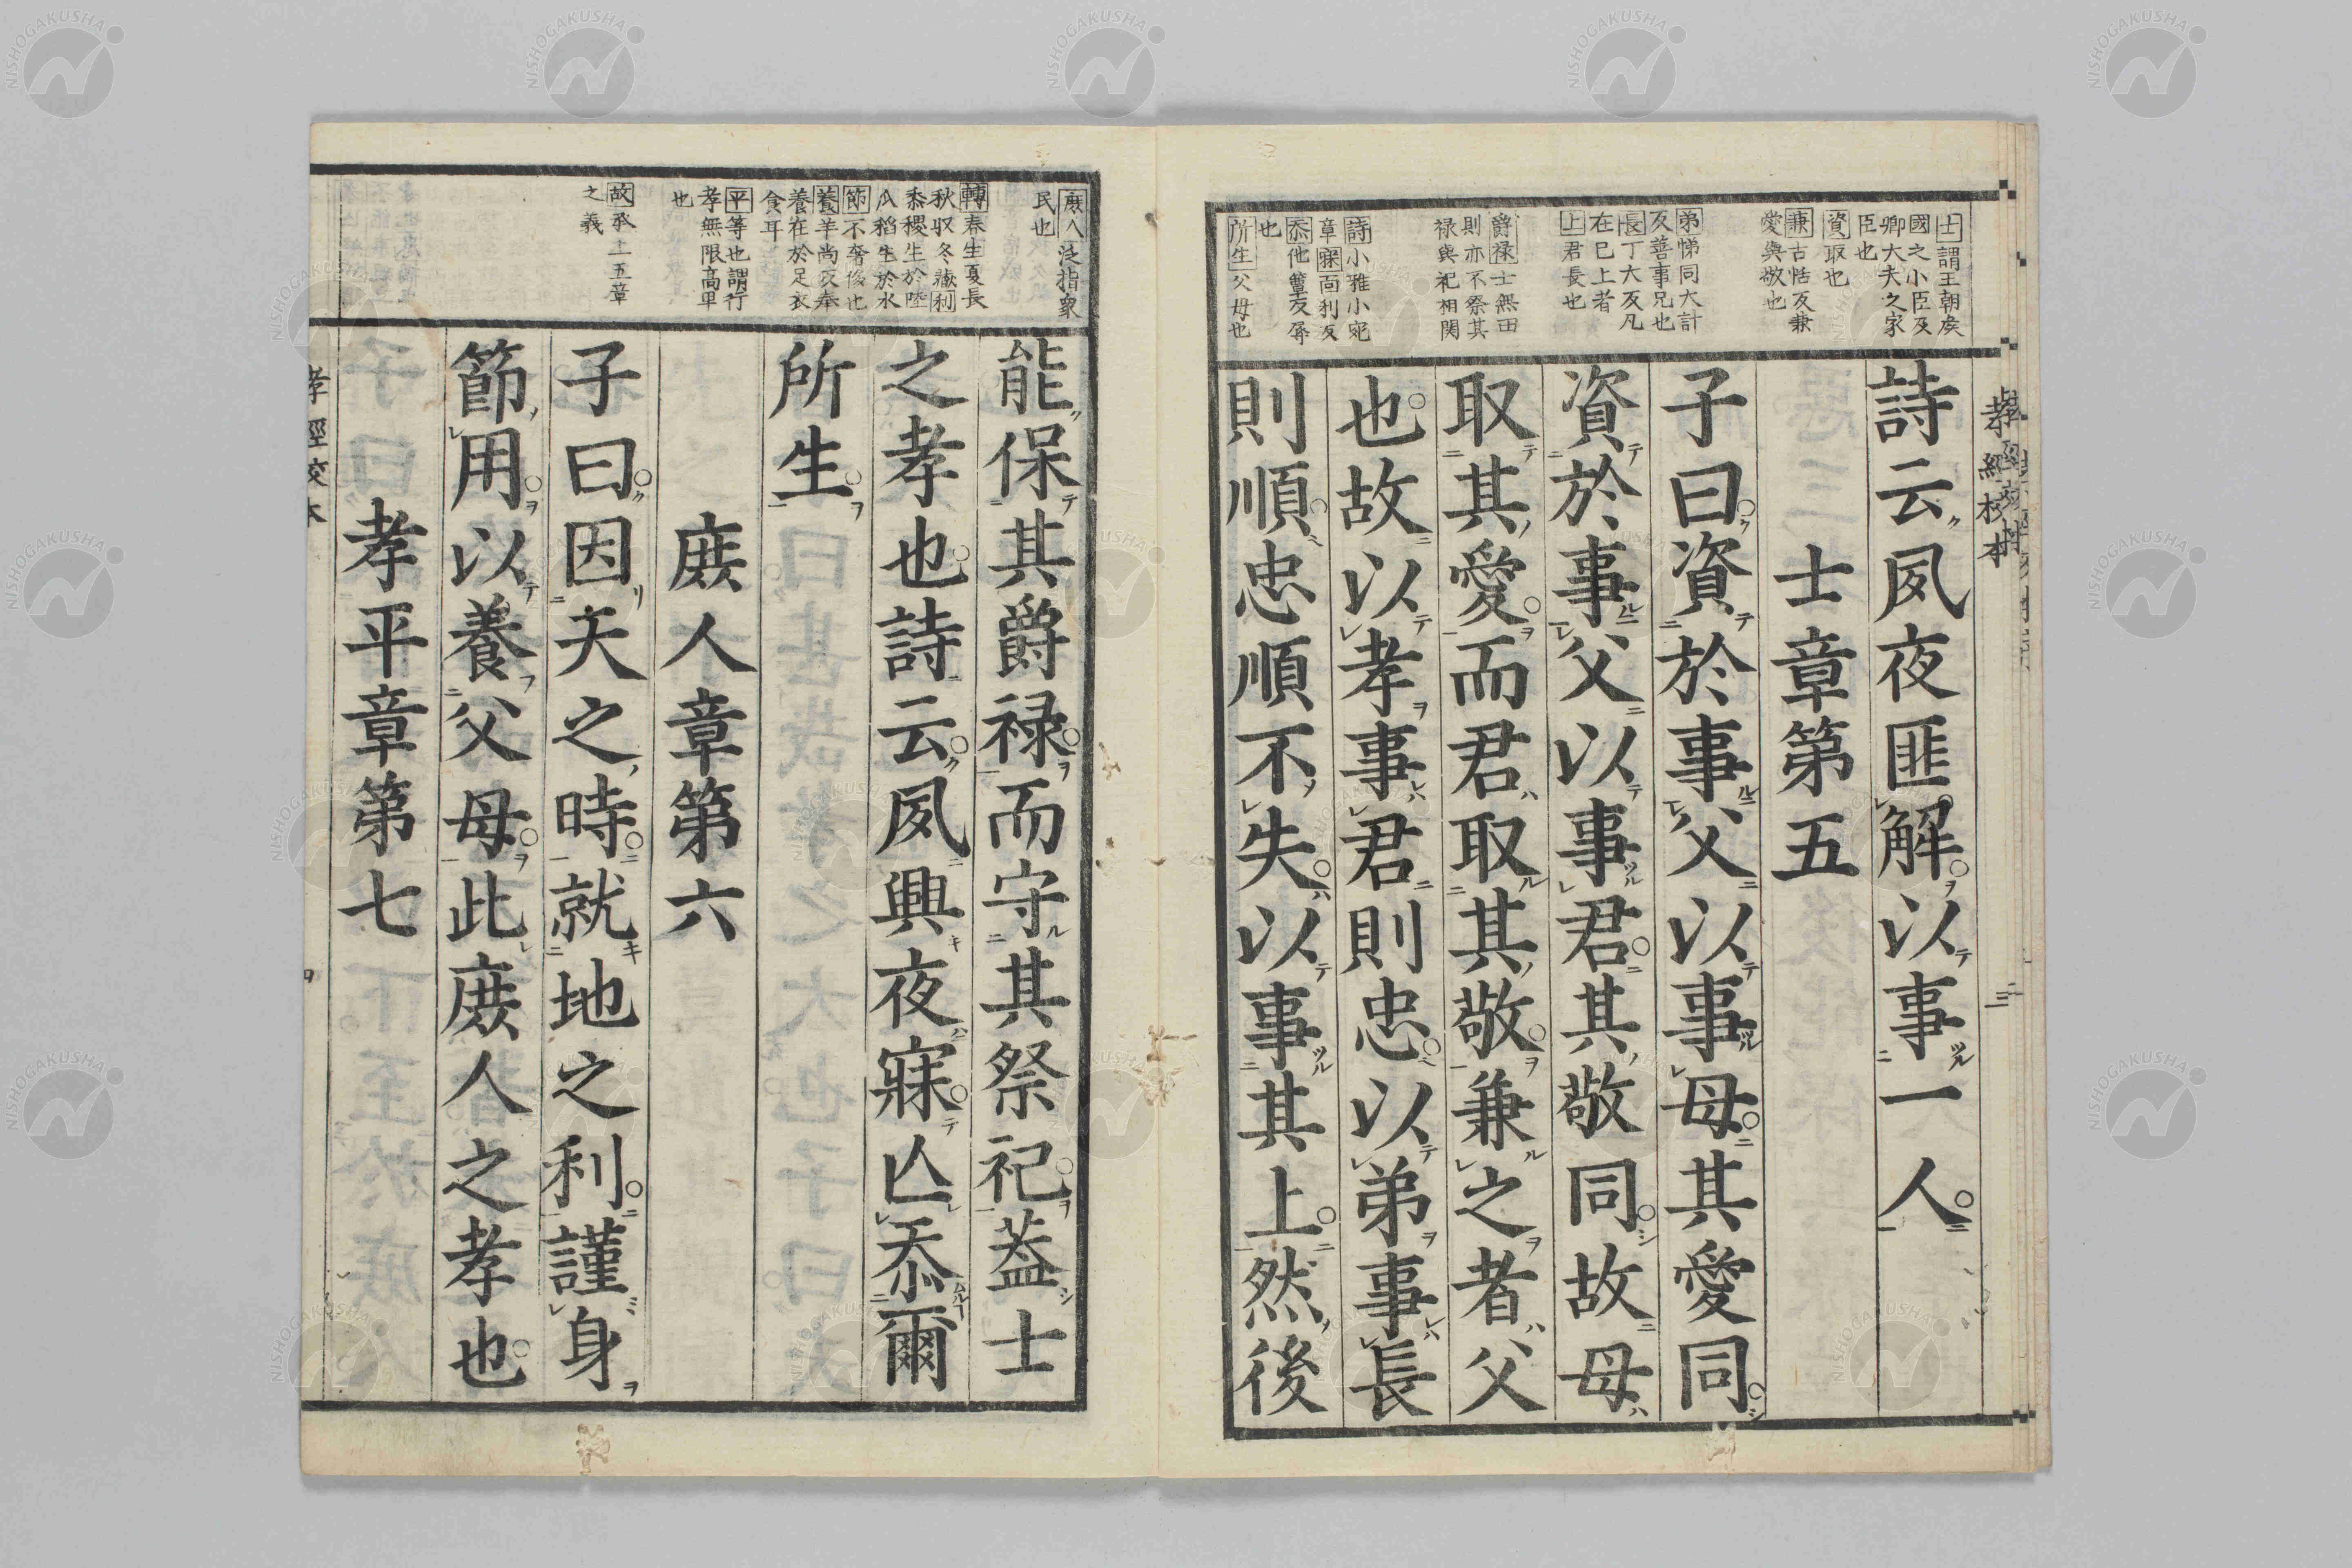 士謂王朝矦
國之小臣及
卿大夫之家
臣也
資取也
兼古恬反兼
愛與敬也
弟悌同大計
反善事兄也
長丁大反凡
在已上者
上君長也
爵祿士無田
則亦不祭其
禄與祀相関
詩小雅小宛
章寐而利反
忝他簟反辱
也
所生父母也
孝經校本
三
詩云夙夜匪解以事一人
士章第五
子曰資於事父以事母其愛同
資於事父以事君其敬同故母
取其愛而君取其敬兼之者父
也故以孝事君則忠以弟事長
則順忠順不失以事其上然後
庻人泛指衆
民也
轉春生夏長
秋収冬藏利
黍稷生於陸
瓜稻生於水
節不奢侈也
養羊尚反奉
養在於足衣
食耳
平等也謂行
孝無限高卑
也
故承上五章
之義
能保其爵禄而守其祭祀葢士
之孝也詩云夙興夜寐亾忝爾
所生
庻人章第六
子曰因天之時就地之利謹身
節用以養父母此庻人之孝也
孝平章第七
孝經校本
NISHOGAKUSHA